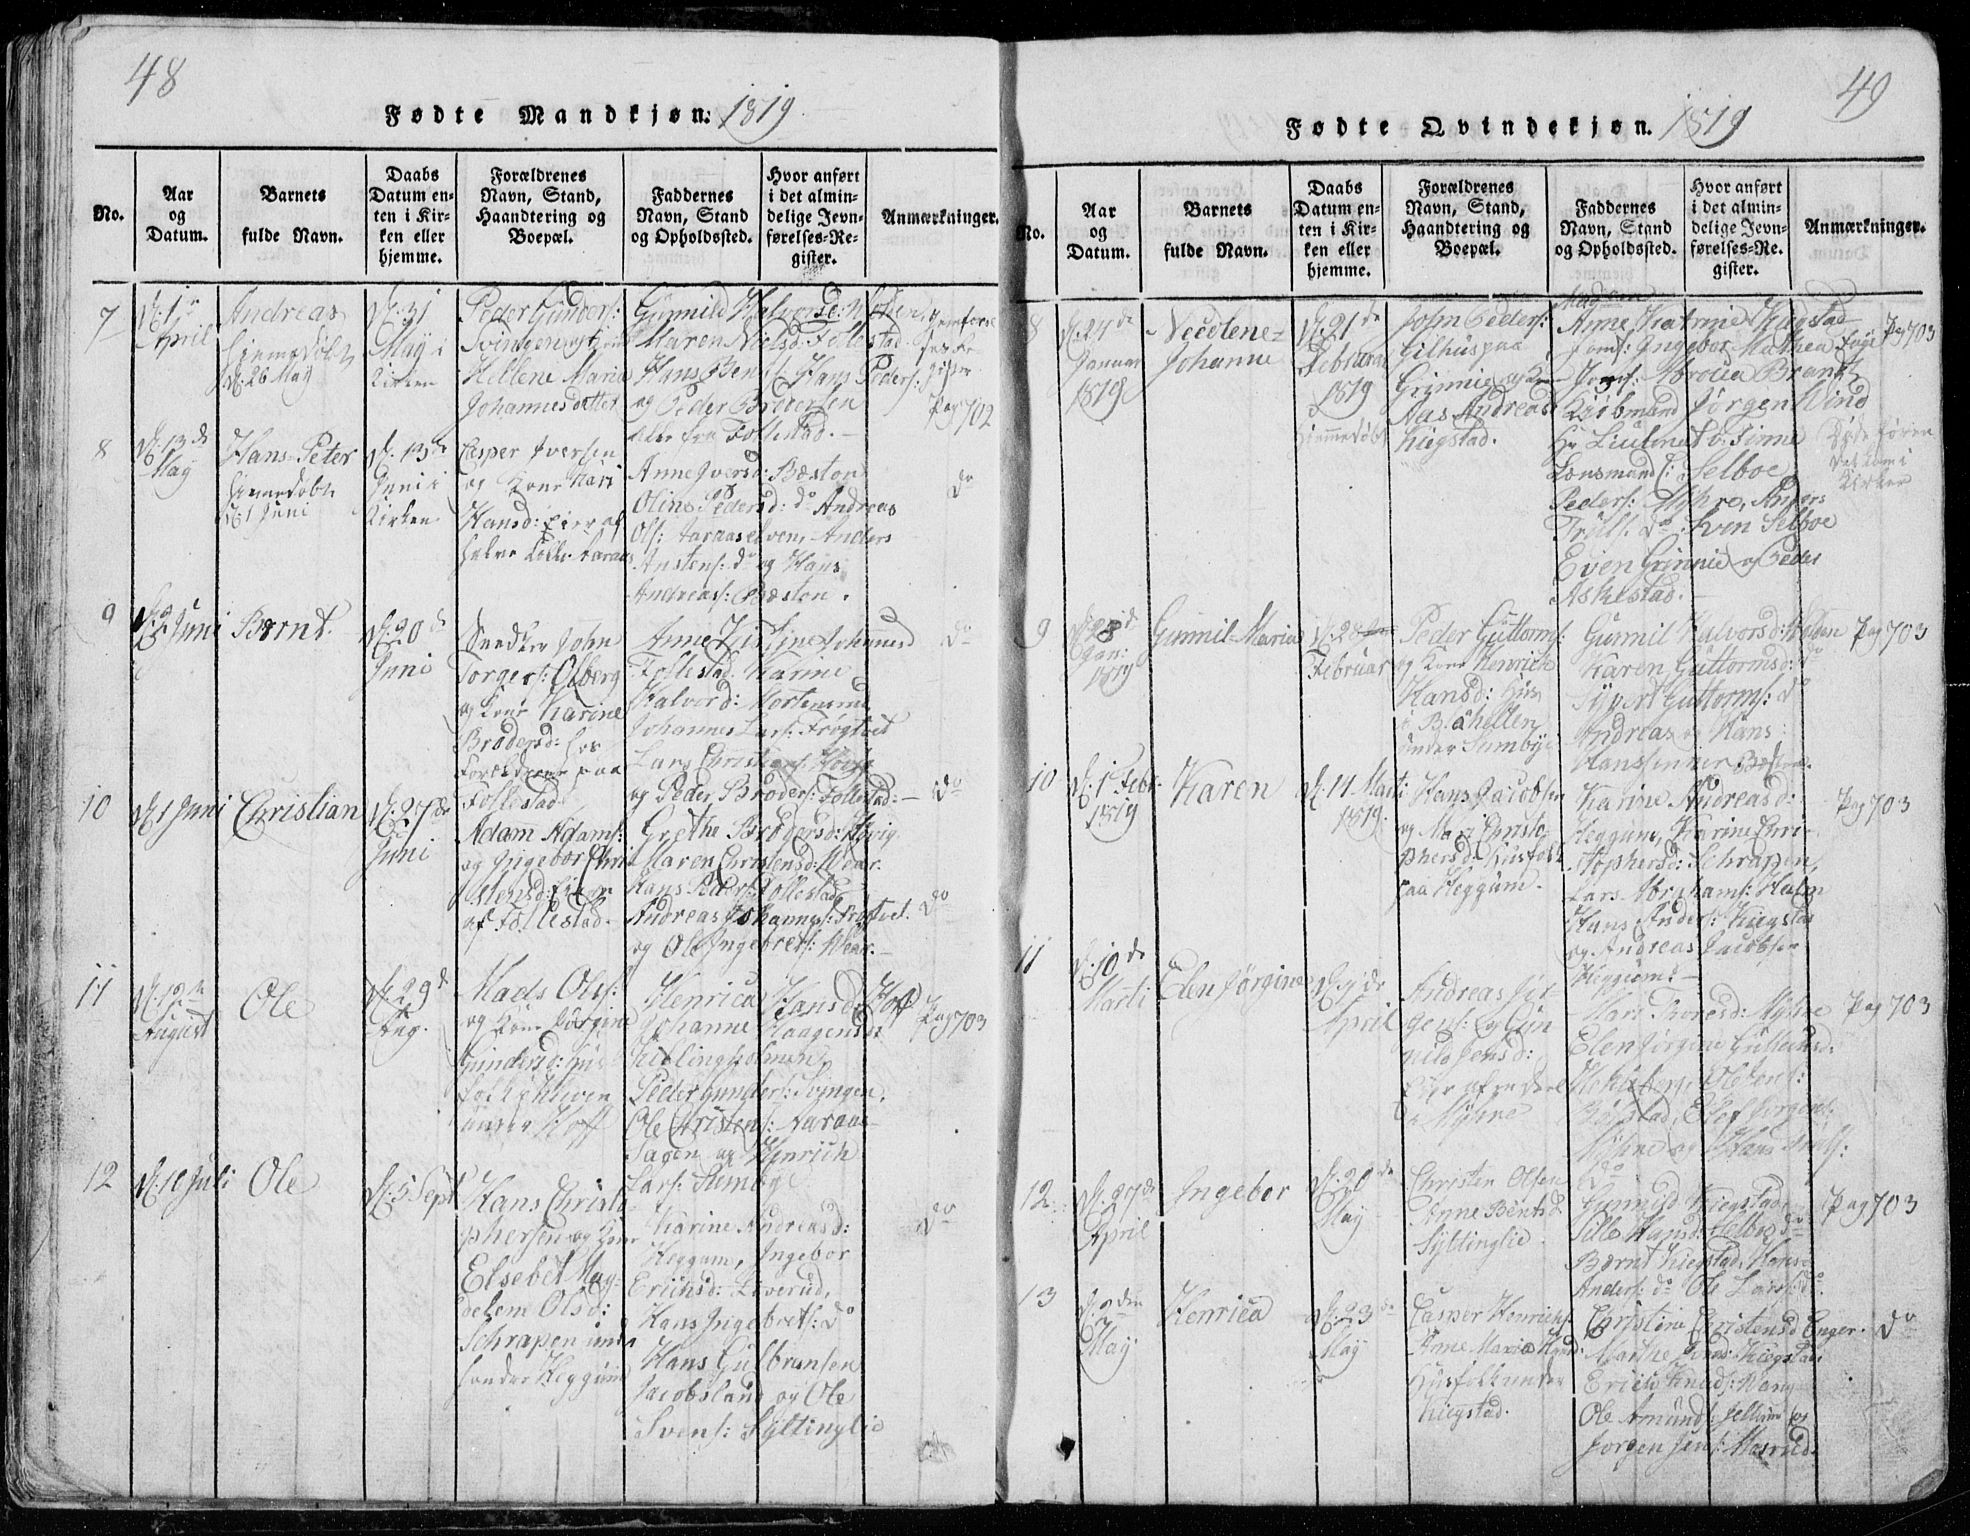 48
Fødte Mandkjøn: 1819.
No.
Aar
og
Datum.
Barnets
fulde Navn.
Daabs
Datum en-
ten i Kir-
ken eller
hjemme.
Forældrenes
Navn, Stand,
Haandtering og
Boepæl.
Faddernes
Navn, Stand
og Opholdssted.
Hvor anført
i det almin-
delige Jevn-
førelses-Re-
gister.
Anmærkninger.
7
April
Andreas
hiemedøbt
d: 26 May
d: 31
May i
Kirken
Peder Gunders:
Svingen og Kone
Hellene Marie
Johannesdatter
Gunnild Halvorsd:
Maren Nielsd: Follestad
Hans Bens: Hans Peders:
og Peder Brorersen
alle fra Follestad.
Pag 702
8
d: 13de
May
Hans Peter
hiemedøbt
d: 1 Juni
d. 13de
Juni i
Kirken
Casper Iversen
og Kone Kari
Hansd: Eier af
Anne Iversd: Bæston
Oline Pedersd: do Andreas
Ols: Aaraaselven, Anders
Anstens: do og Hans
Andreass: Bæston.
do
9
Juni
Bernt.
d: 20de
Juni
John
Torgers: Olberg
og Kone Karine
Brodersd: hos
Forældrene paa
Follestad
Anne
Follestad. Karine
Halvord: Mortensrud
Johannes Lars: Frøgtvet
Lars Christians: Høvig
og Peder Broders: Follestad.
do
10
d. 1 Juni
Christian
d: 27de
Juni
Adam Adams:
og Ingebor Chri
stensd: Eiere
af Follestad.
Grethe Brodersd: Høvig
Maren Christensd: Wear.
Hans Peders: Follestad
Andreas Johannes: Frogtvet.
og Ole Ingebrets: Wear.
do
do
11
August
Ole
d: 29de
Aug.
Mads Ols:
og Kone Jørgine
Gundersd: Huus
folk i Kleven
under Hoff
Henrica Hansd: Hoff
Johanne Haagensd:
Killingholmen
Peder Gunders: Svingen,
Ole Christens: Aaraas
Sagen og Henrich
Lars: Slemby
Pag 703
12
d. 10 Juli
Ole
d: 5 Sept
Hans Christo
phersen og Kone
Elsebet Mag-
delem Olsd:
Schrapen under
Heggum
Karine Andreasd:
Heggum, Ingebor
Erichsd: Leverud,
Hans Ingebrets: do
Hans Gulbransen
Jacobsland og Ole
Svens: Syltinglie
do
49
Fødte Qvindekjøn. 1819
No.
Aar
og
Datum.
Barnets
fulde Navn.
Daabs
Datum en-
ten i Kir-
ken eller
hjemme.
Forældrenes
Navn, Stand,
Haandtering og
Boepæl.
Faddernes
Navn, Stand
og Opholdssted.
Hvor anført
i det almin-
delige Jevn-
førelses-Re-
gister.
Anmærkninger.
8
d: 24de
Januar
1819
Nicoline
Johanne
d: 21de
Februar
1819
hiemmedøbt
John Peders:
Gilhus paa
Grinnie og Kone
Aas Andreasd:
Kiegstad.
Anne Katrine Kiegstad
Jomf: Ingebor Mathea
Jomf: Brandt
Kiøbmand Jørgen Wind
Hr Liutnet v: Sinne
Lensmand Selboe
Peders: Myhre, Anders
Troils: do Sven Selboe
Even Grinnie og Peder
Askestad.
Pag 703
Kirken
9
d: 28de
Jan:
1819
Gunnil Maria
d: 28
Februar
Peder Guttorms:
og Kone Henrich
Hansd:
i Blåhellen
under Sundbye
Gunnil Halvorsd: Holden
Karen Guttormsd: do
Syvert Guttorms: do
Andreas og Hans
Hanssenner Bæston.
Pag 703
10
d. 1 Febr.
1819
Karen
d. 14 Marti
1819.
Hans Jacobsen
og Mari Christo
phersd: Husfolk
paa Heggum.
Karine Andreasd:
Heggum, Karine Chri-
stophersd: Schrapen,
Lars Abrahams: Holm
Hans Anders: Kiegstad
og Andreas Jacobsen
Heggum.
Pag 703
11
d. 10de
Marti
Elen Jørgine
April
Andreas Jør
gens: og Gun
nild Jensd:
Eier af en deel
i Myhre
Mari Thoresd: Myhre
Elen Jørgine
Hans Niels:
do
Pag 703
12
d. 27de
April
Ingebor
d: 20de
May
Christen Olsen
Anne Bentsd
Syltinglie
Gunnild Kiegstad,
Sille Hansd: Selboe do
Bernt Kiegstad, Hans
Anders: do Ole Lars: do.
Pag 703
13
d. 2den
May
Henrica
d. 23de
May
Casper Henrichs:
Anne Maria
Husfolk under
Kiegstad.
Christine Christensd Enger.
Marthe Kiegstad
Erich Knuds: Wang
Ole Amunds: og
Jørgen Jens: Masrud.
do